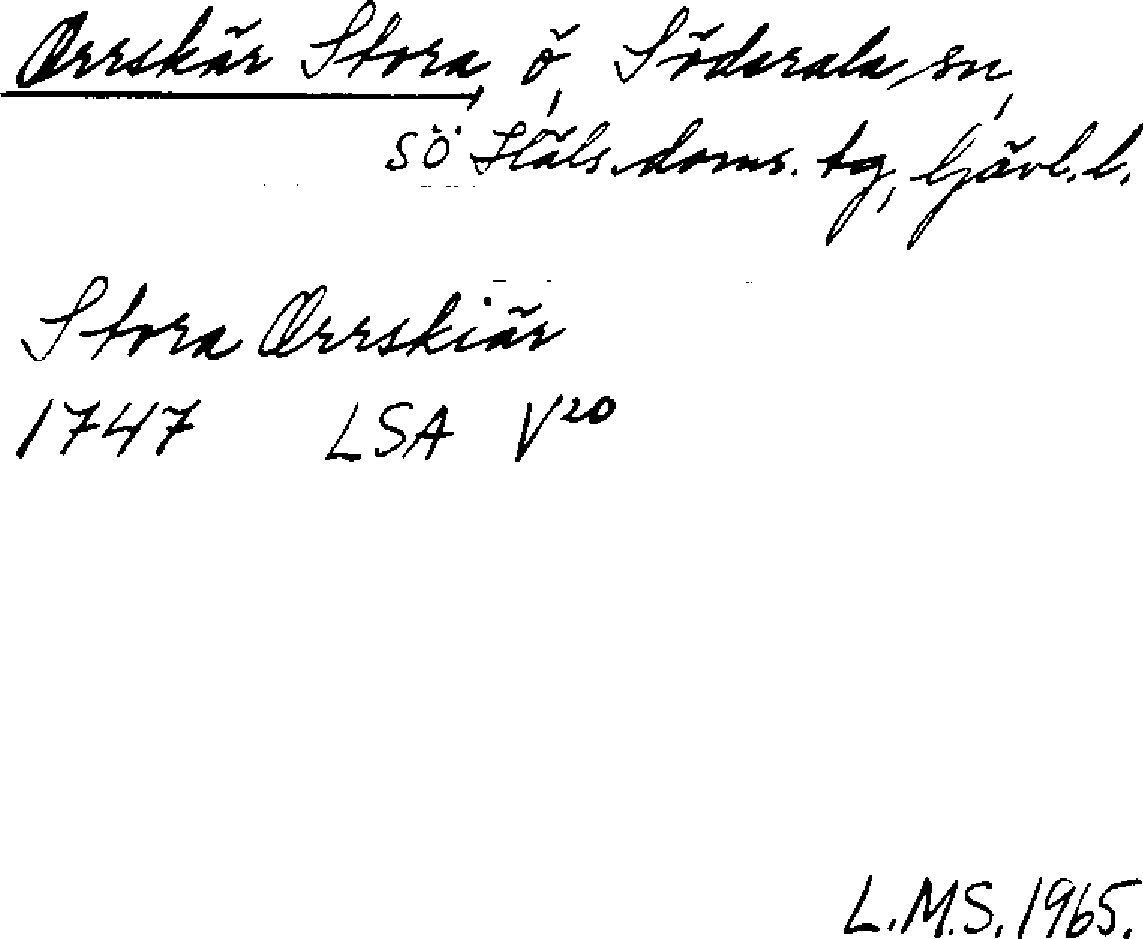 Orrskär Stora, ö, Söderala sn,
SÖ Häls. doms. tg, Gävl. l.
Stora Orrskiär
1747 LSA V20
L.M.S. 1965.